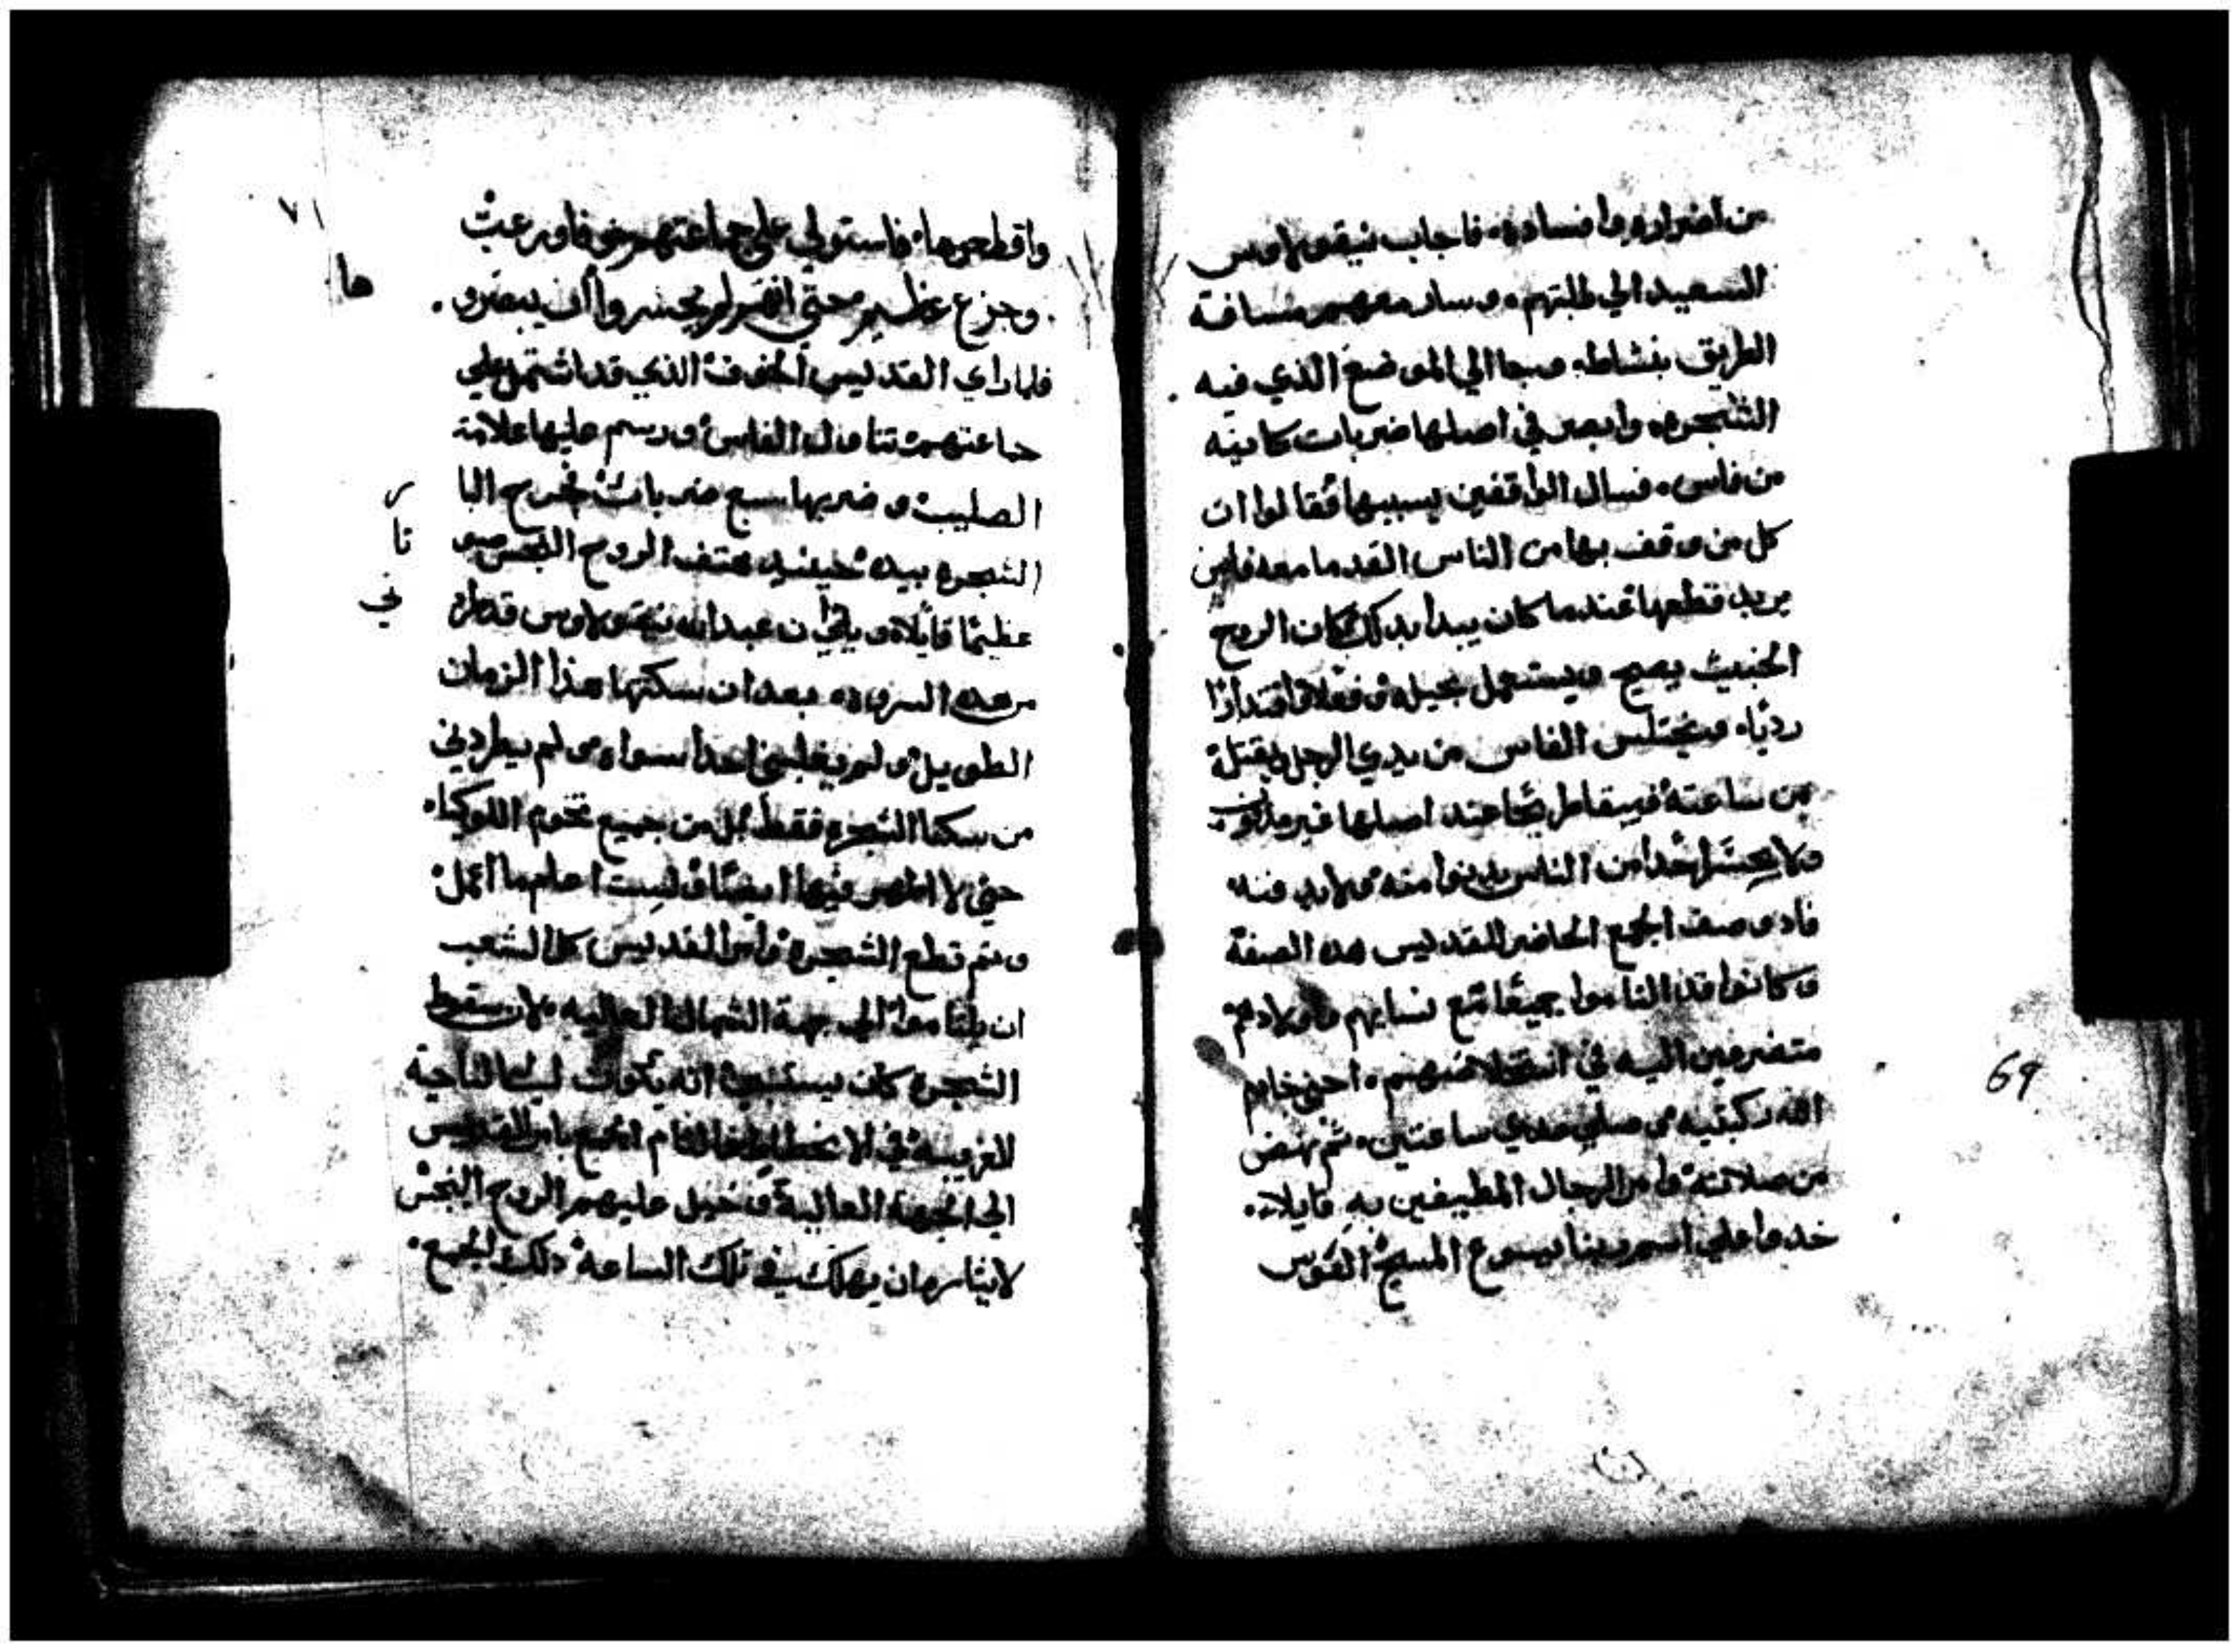 من اضراره وافساده، فاجاب نيقولاوس
السعيد الي طلبتهم، وسار معهم مسافة
الطريق بنشاطه وجا الي الموضع الذي فيه
الشجره، وابصر في اصلها ضربات كاينه
من فاس، فسال الواقفين بسببها فقالوا ان
كل من وقف بها من الناس القدما معه فاس
يريد قطعها عندما كان يبدا بدلك كان الروح
الخبيث يصيح ويستعمل بحيله وفعلا واقتدارا
رديا، ويختلس الفاس من يدي الرجل ويقتلة
من ساعتة عند اصلها غير
احدا من الناس يدنوا منه
فادوصف الجمع الحاضر للقديس هده الصفة
وكانوا قد التاموا جميعا مع نسايهم واولادهم
متضرعين اليه في احني خادم
الله ركبتيه وصلي مدي ساعتين، ثم نهض
من صلاته وامر الرجال المطيفين به قايلا،
خدوا علي اسم ربنا يسوع المسيح الفووس
٧١
واقطعوها، فاستولي علي جماعتهم خوفا ورعبْ
ها
وجزع عظيم حتي انهم لم يجسروا ان يبصرو
فلما راي القديس الخوف الذي قد اشتمل علي
جماعتهم تناول الفاس ورسم عليها علامة
الصليب وضربها سبع ضربات فخرج البا
ر
الشجره بيده حينيد هتف الروح النجس صو
تا
عظيما قايلا ويلي ان عبدالله نيقولاوس قد طر
ني
من هده السروه، بعد ان سكنتها هذا الزمان
الطويل ولم يغلبني احدا سواه ولم يطردني
من سكنا الشجره فقط بل من جميع تخوم اللوكيا،
حتي لا اظهر فيها ايضا ولست اعلم ما اعمل
ويتم قطع الشجرة وامر القديس كل الشعب
ان يلتاموا الي جهة الشمال العاليه، لان سقوط
الشجره كان انه يكون الناحية
الغربيه في القديس
الي الجهة العالية وخيل عليهم الروح النجس
ان يهلك في تلك الساعة دلك الجمع
69